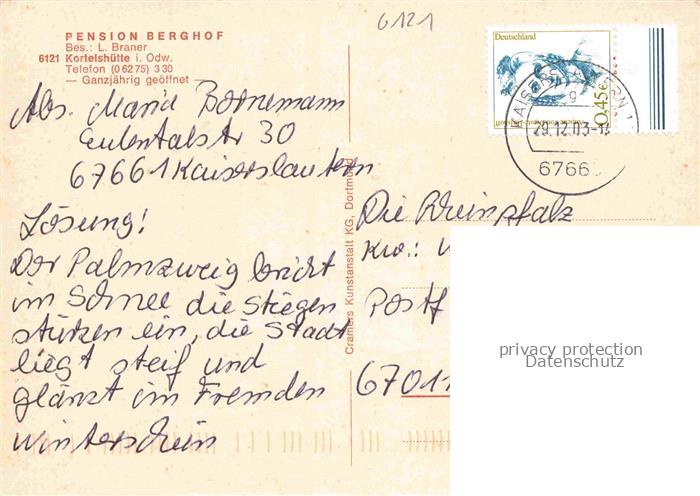 6121
PENSION BERGHOF
Bes.: L. Braner
6121 Kortelshütte i. Odw.
Telefon (0 62 75) 3 30
— Ganzjährig geöffnet —
Abs. Maria Bornemann
Eulentalstr 30
67661 Kaiserslautern
Lösung!
Der Palmzweig bricht
im Schnee die Stiegen
stürzen ein, die Stadt
liegt steif und
glänzt im Fremden
Winterschein
Cramers Kunstanstalt KG, Dortmund
Deutschland
0,45€
KAISERSLAUTERN 1
29.12.03-1
6766
Die Rheinpfalz
Kw.:
Postf
67011
privacy protection
Datenschutz